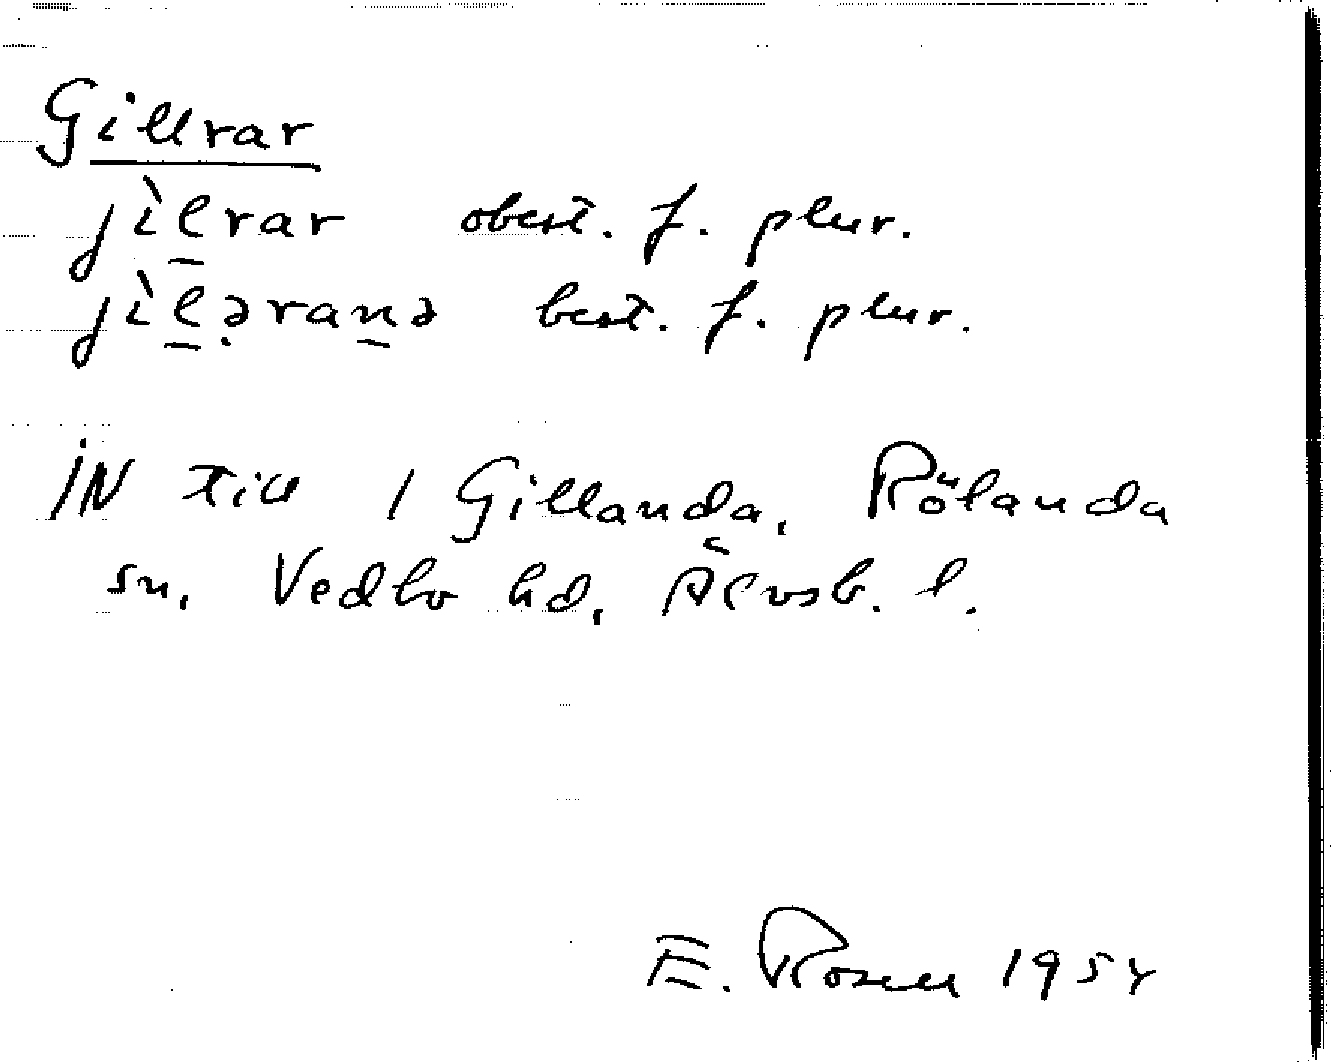 Gillrar
jìl̲rar obest. f. plur.
jìl̲ə̣ran̲ə best. f. plur.
IN till 1 Gillanda, Rölanda
sn, Vedbo hd, Älvsb. l.
E. Rosell 1954